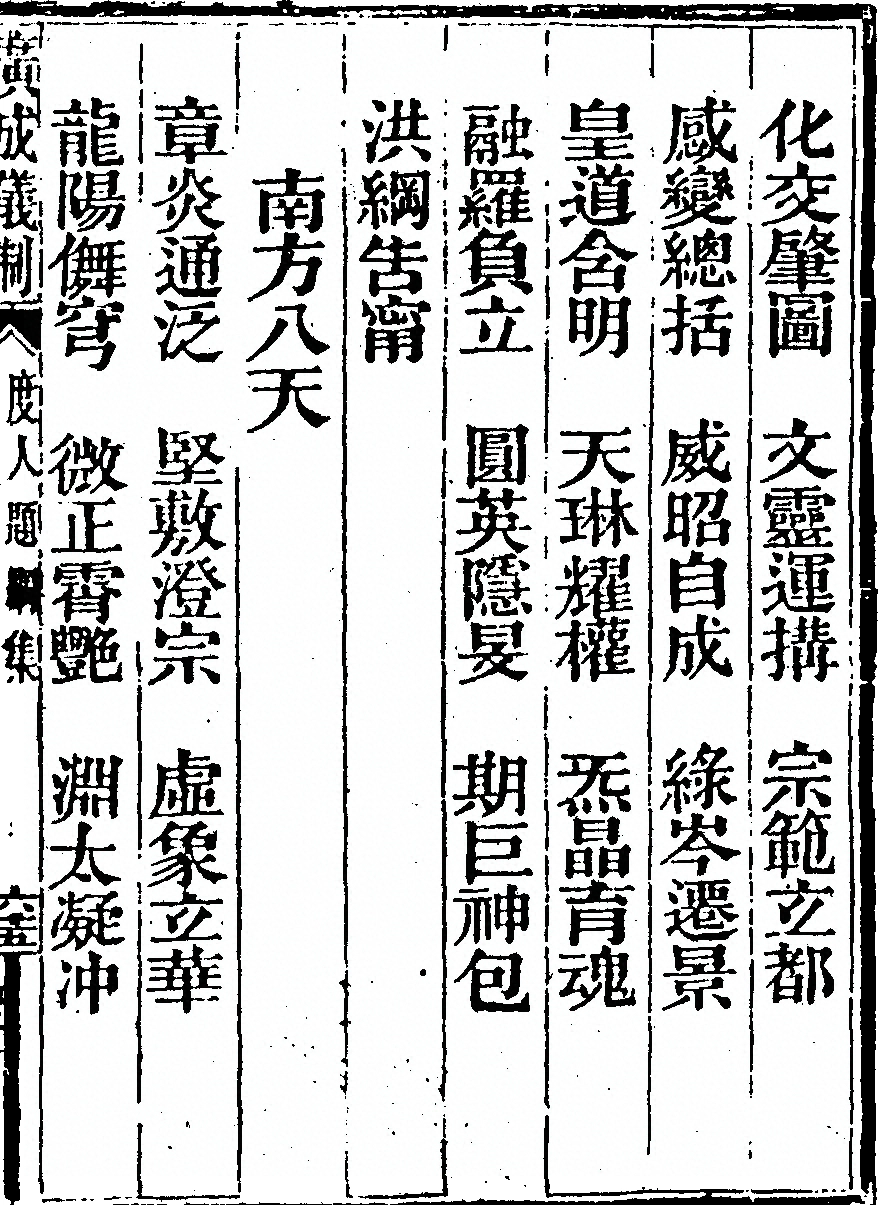 化交肇圖　文靈運搆　宗範立都
感變總括　威昭自成　綠岑遷景
皇道含明　天琳耀權　炁晶育魂
融羅負立　圓英隱旻　期巨神包
洪綱告甯
南方八天
章炎通泛　堅敷澄宗　虛象立華
龍陽儛穹　微正霄艷　淵太凝冲
廣成儀制　度人題綱集　六五